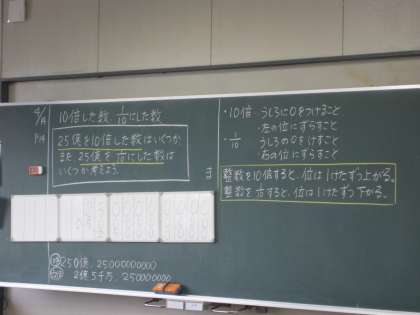 4/14
P.14
10倍した数 1/10にした数
25億を10倍した数はいくつか。
また、25億を1/10にした数は
いくつか考えよう。
250億、25000000000
2億5千万、250000000
・10倍 うしろに0をつけること
・左の位にずらすこと
・1/10 うしろの0をけすこと
・右の位にずらすこと
整数を10倍すると、位は1けたずつ上がる。
整数を1/10すると、位は1けたずつ下がる。